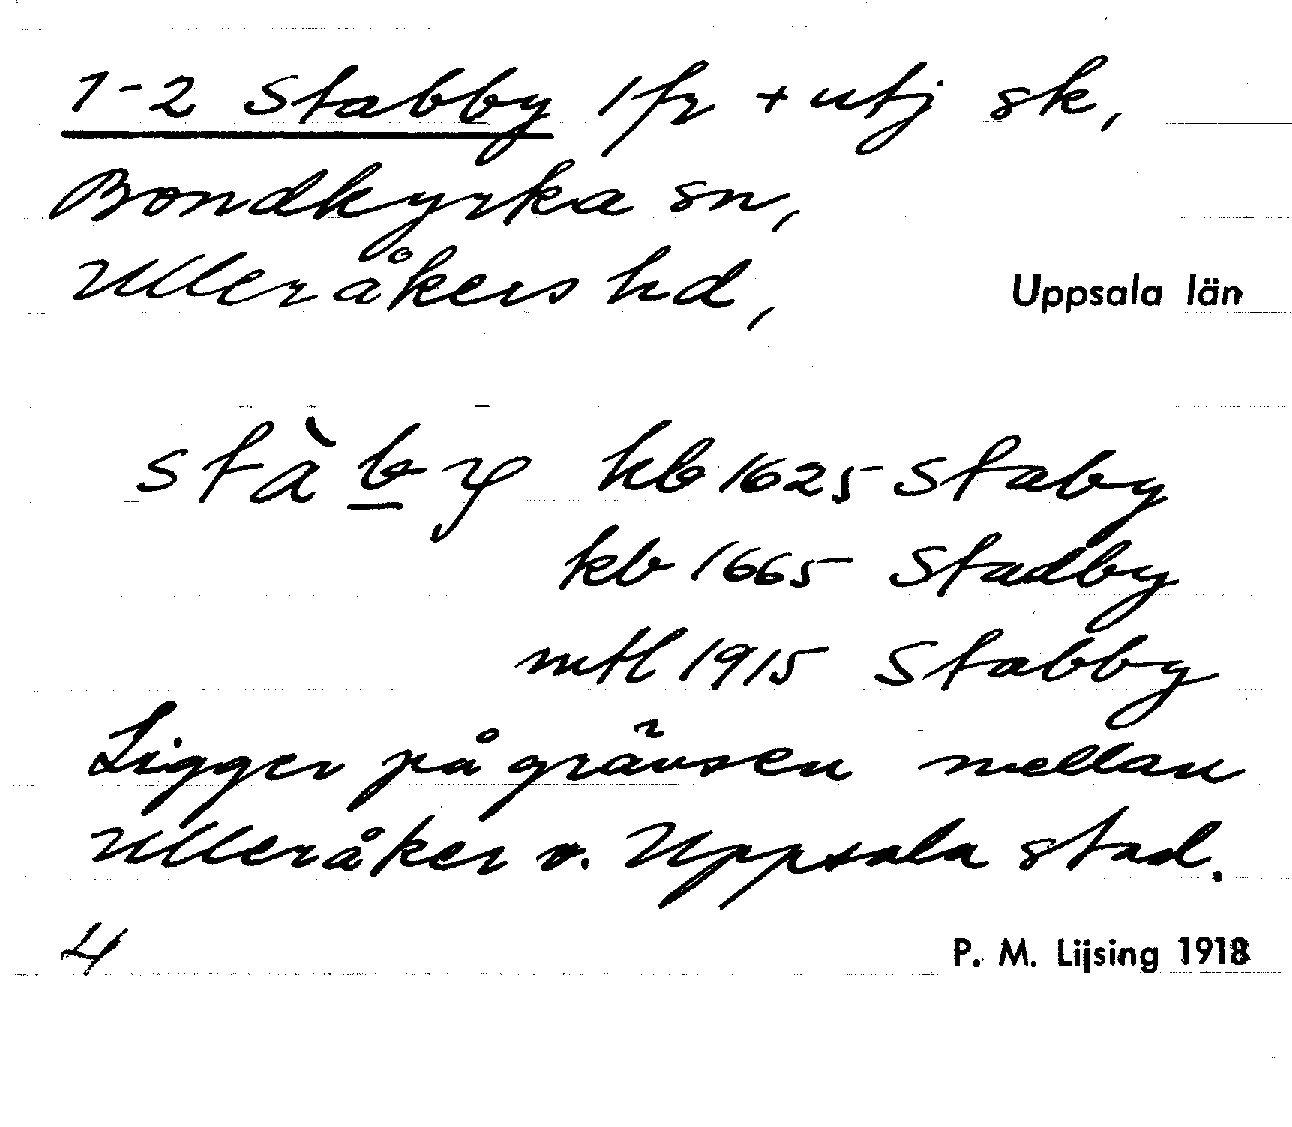 1-2 Stabby 1 fr + utj sk,
Bondkyrka sn,
Ulleråkers hd, Uppsala län
stàb̲y hb 1625 Staby
kb 1665 Stadby
mtl 1915 Stabby
Ligger på gränsen mellan
Ulleråker o. Uppsala stad.
4 P. M. Lijsing 1918